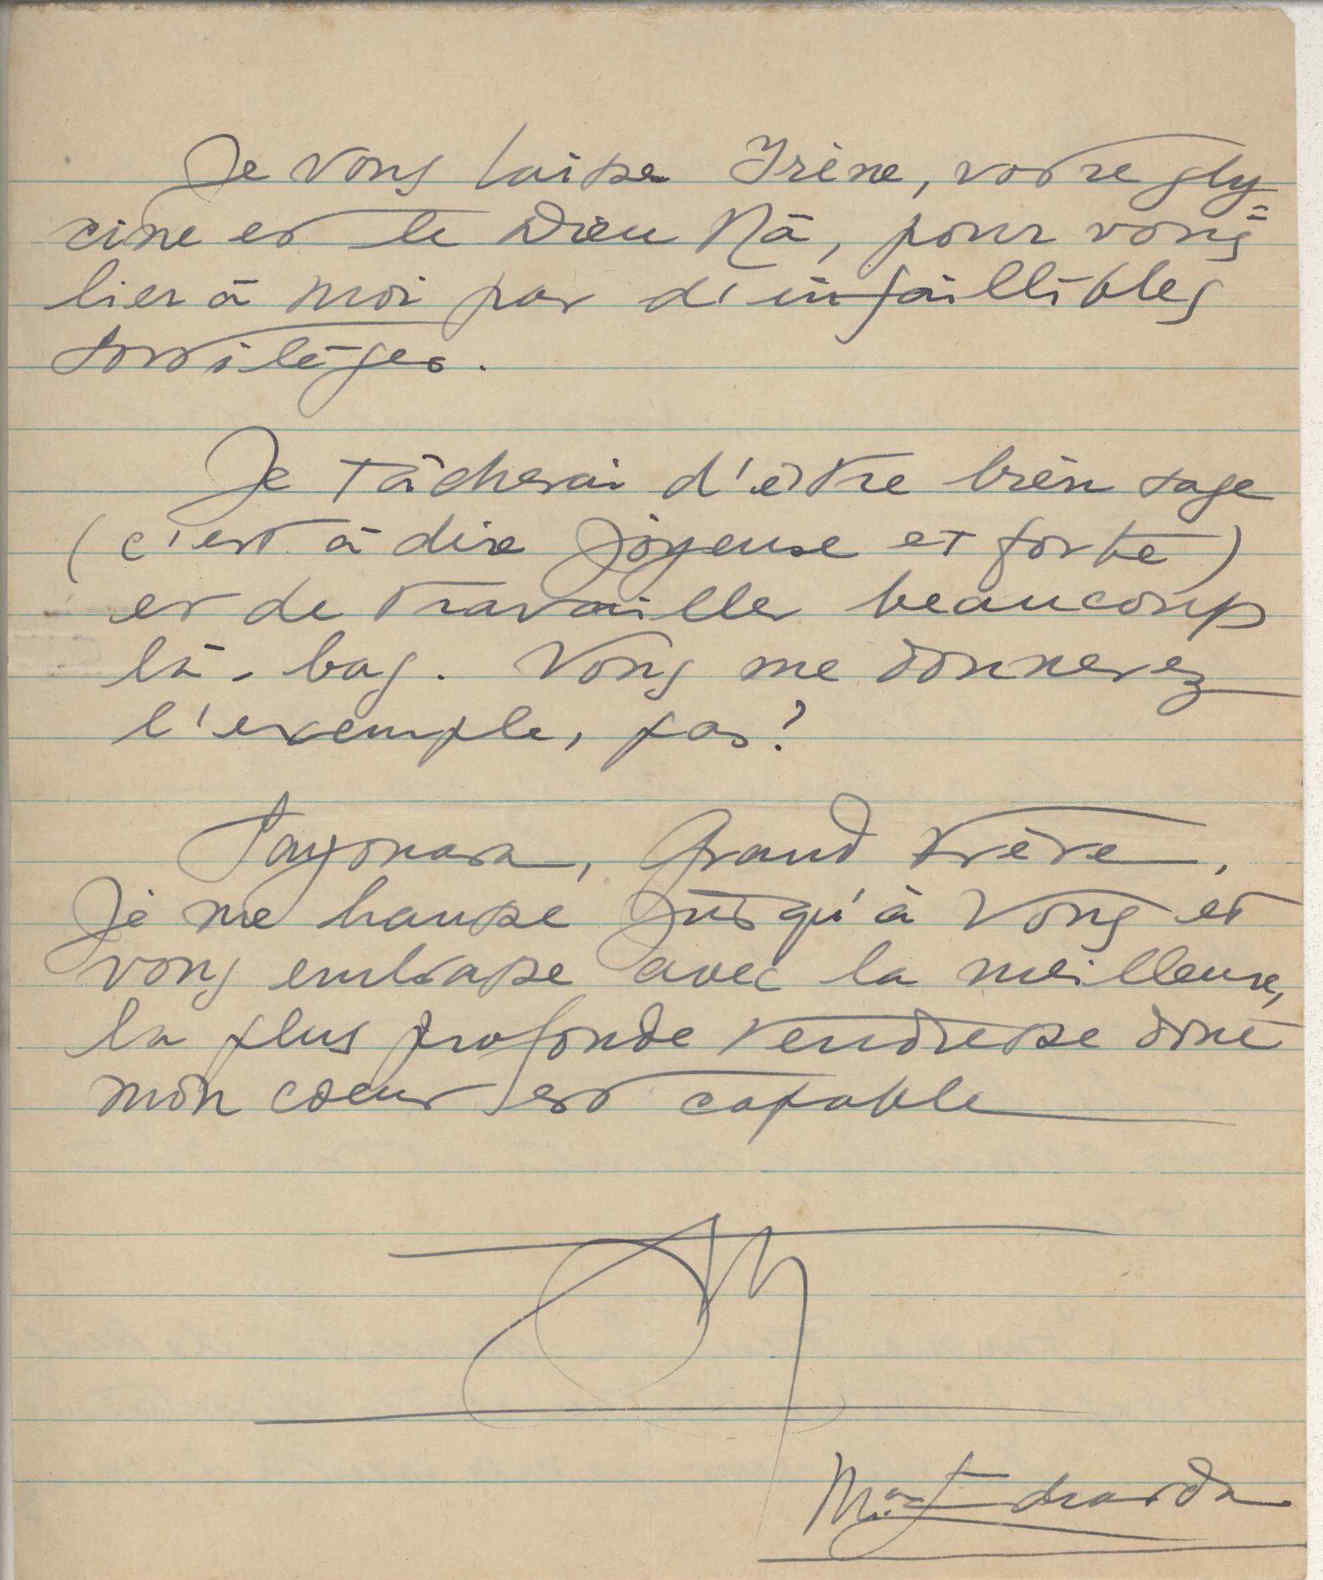 Je vous laisse Irène, votre gly=
cine et le Dieu Nâ, pour vous
lier à moi par d'infaillibles
sortilèges.
Je tâcherai d'être bien sage
(c'est à dire joyeuse et forte)
et de travailler beaucoup
là-bas. Vous me donnerez
l'exemple, pas?
Sayonara, Grand Frère.
Je me hausse jusqu'à Vous et
vous embrasse avec la meilleure,
la plus profonde tendresse dont
mon cœur est capable